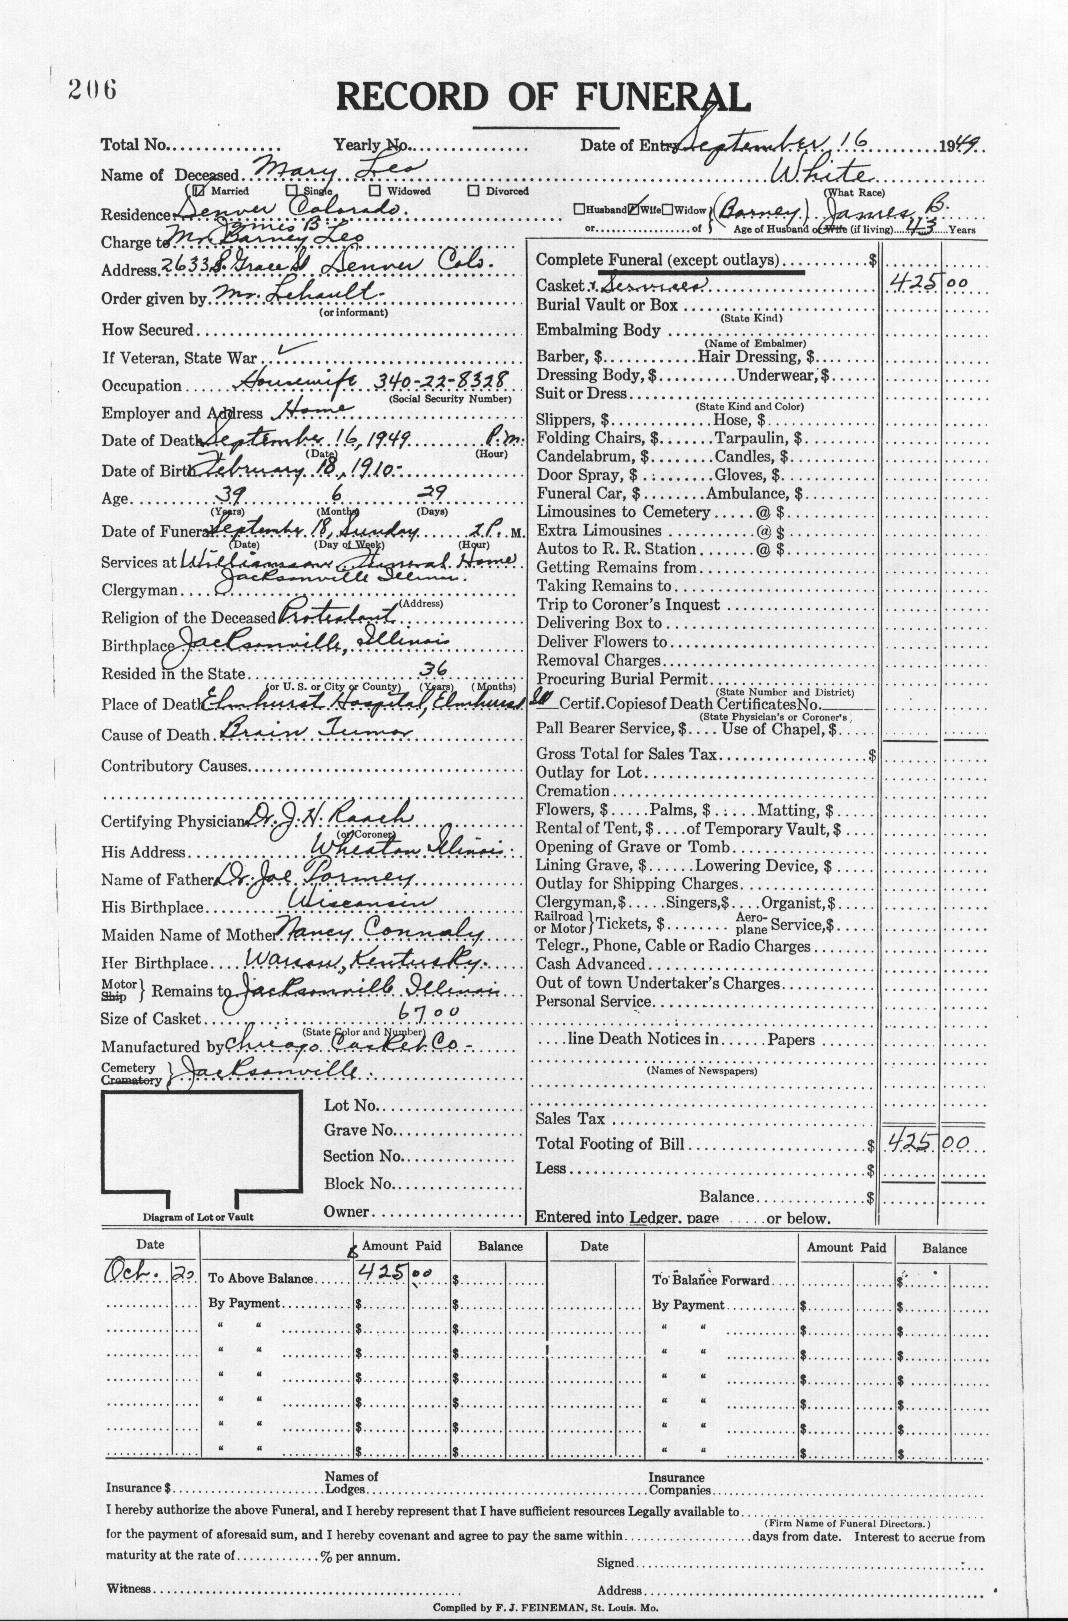 206
RECORD OF FUNERAL
Total No. Yearly No. Date of Entry September 16 1949
Name of Deceased Mary Leo White
Married Single Widowed Divorced (What Race)
Residence Denver Colorado. Husband Wife Widow (Barney) James B.
or of Age of Husband or Wife (if living) 43 Years
James B.
Charge to Mr. Barney Leo
Address 2633 S. Grace St Denver Colo.
Order given by Mr.
(or informant)
How Secured
If Veteran, State War
Occupation Housewife 340-22-8328
(Social Security Number)
Employer and Address Home
Date of Death September 16, 1949 P.M.
(Date) (Hour)
Date of Birth February 18, 1910-
Age 39 6 29
(Years) (Months) (Days)
Date of Funeral September 18, Sunday 2 P. M.
(Date) (Day of Week) (Hour)
Services at Williamson Funeral Home
Jacksonville Illinois.
Clergyman
(Address)
Religion of the Deceased Protestant
Birthplace Jacksonville, Illinois
Resided in the State 36
(or U. S. or City or County) (Years) (Months)
Place of Death Elmhurst Hospital, Elmhurst Ill
Cause of Death Brain Tumor
Contributory Causes
Certifying Physician Dr. J. H. Raach
(or Coroner)
His Address Wheaton Illinois.
Name of Father Dr. Joe
His Birthplace Wisconsin
Maiden Name of Mother Nancy Connaly
Her Birthplace Warsaw, Kentucky.
Motor
Ship } Remains to Jacksonville Illinois
Size of Casket 6700
(State Color and Number)
Manufactured by Chicago Casket Co-
Cemetery
Crematory } Jacksonville.
Lot No.
Grave No.
Section No.
Block No.
Owner
Diagram of Lot or Vault
Complete Funeral (except outlays) $
Casket & Services 425 00
Burial Vault or Box
(State Kind)
Embalming Body
(Name of Embalmer)
Barber, $ Hair Dressing, $
Dressing Body, $ Underwear, $
Suit or Dress
(State Kind and Color)
Slippers, $ Hose, $
Folding Chairs, $ Tarpaulin, $
Candelabrum, $ Candles, $
Door Spray, $ Gloves, $
Funeral Car, $ Ambulance, $
Limousines to Cemetery @ $
Extra Limousines @ $
Autos to R. R. Station @ $
Getting Remains from
Taking Remains to
Trip to Coroner's Inquest
Delivering Box to
Deliver Flowers to
Removal Charges
Procuring Burial Permit
(State Number and District)
Certif. Copies of Death Certificates No.
(State Physician's or Coroner's
Pall Bearer Service, $ Use of Chapel, $
Gross Total for Sales Tax $
Outlay for Lot
Cremation
Flowers, $ Palms, $ Matting, $
Rental of Tent, $ of Temporary Vault, $
Opening of Grave or Tomb
Lining Grave, $ Lowering Device, $
Outlay for Shipping Charges
Clergyman, $ Singers, $ Organist, $
Railroad or Motor } Tickets, $ Aero-plane Service, $
Telegr., Phone, Cable or Radio Charges
Cash Advanced
Out of town Undertaker's Charges
Personal Service
line Death Notices in Papers
(Names of Newspapers)
Sales Tax
Total Footing of Bill $ 425 00
Less $
Balance $
Entered into Ledger, page or below.
Date Amount Paid Balance Date Amount Paid Balance
Oct. 20 To Above Balance 425 00 $ To Balance Forward $
By Payment $ $ By Payment $ $
" " $ $ " " $ $
" " $ $ " " $ $
" " $ $ " " $ $
" " $ $ " " $ $
" " $ $ " " $ $
" " $ $ " " $ $
Insurance $ Names of Lodges Insurance Companies
I hereby authorize the above Funeral, and I hereby represent that I have sufficient resources Legally available to
(Firm Name of Funeral Directors.)
for the payment of aforesaid sum, and I hereby covenant and agree to pay the same within days from date. Interest to accrue from
maturity at the rate of % per annum.
Signed
Witness Address
Compiled by F. J. FEINEMAN, St. Louis. Mo.